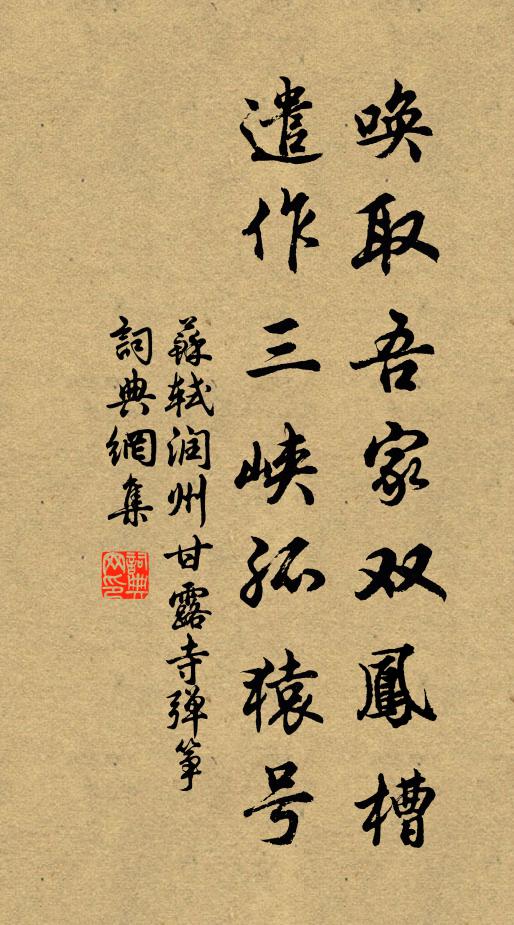 唤取吾家双鳳槽
遣作三峡孤猿号
蘇轼润州甘露寺弹筝
詞典網集
詞典网印